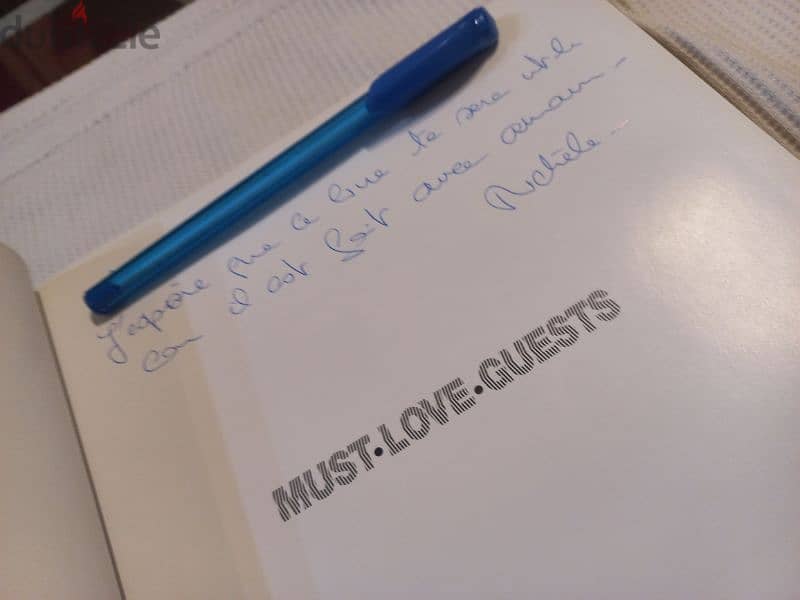 dubizzle
J'espère que ce livre te sera utile
car il est fait avec amour -
Michèle -
MUST•LOVE•GUESTS